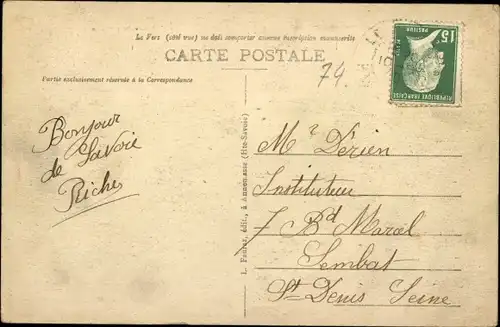 Le Vers (côté vue) ne doit comporter aucune inscription manuscrite
CARTE POSTALE
Partie exclusivement réservée à la Correspondance
74.
15c
POSTES
PASTEUR
REPUBLIQUE FRANÇAISE
Bonjour
de Savoie
Riche
L. Fauraz, édit., à Annemasse (Hte-Savoie)
Mr Dérien
Instituteur
7 Bd Marcel
Sembat
St Denis Seine